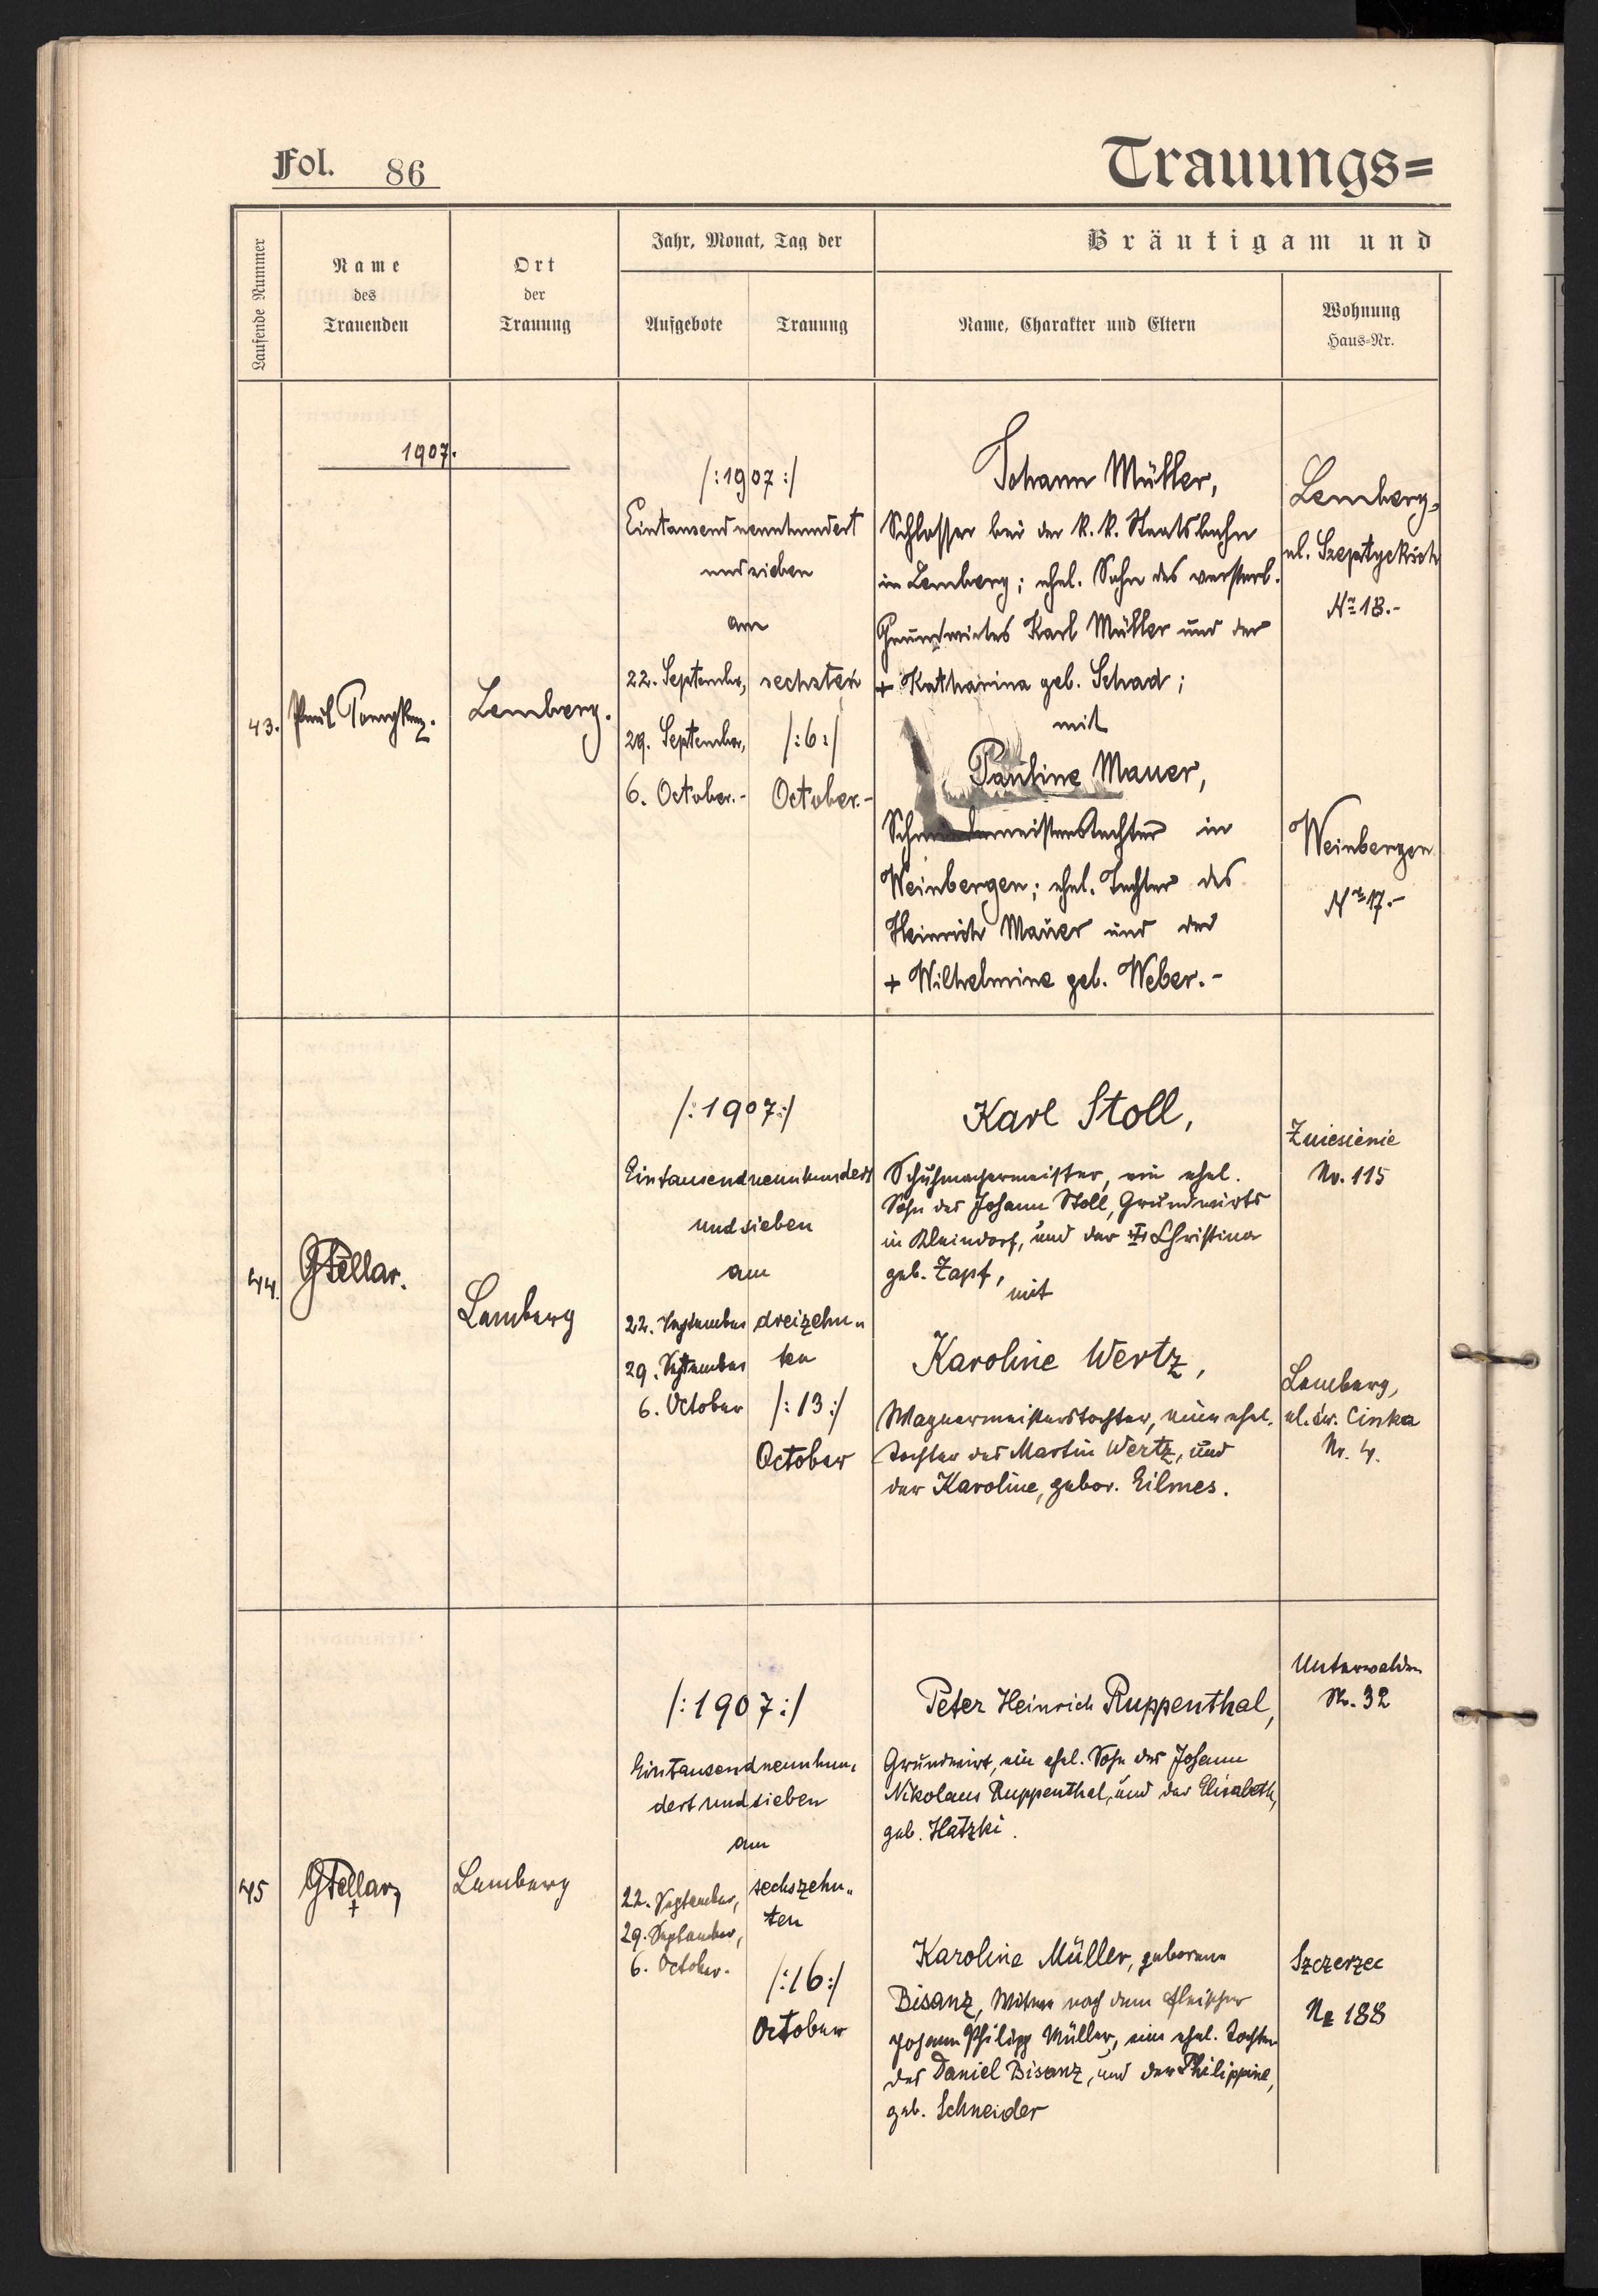 Fol. 86
Trauungs=
Laufende Nummer
Name
des
Trauenden
Ort
der
Trauung
Jahr, Monat, Tag der
Aufgebote
Trauung
Bräutigam und
Name, Charakter und Eltern
Wohnung
Haus-Nr.
1907.
43.
Paul
Lemberg.
/:1907:/
Eintausendneunhundert
undsieben
am
22. September,
29. September,
6. October.-
sechsten
/:6:/
October.-
Johann Müller,
Schlosser bei der k. k. Staatsbahn
in Lemberg; ehel. Sohn des verstorb.
Grundwirtes Karl Müller und der
+ Katharina geb. Schad;
mit
Pauline Mauer,
in
Weinbergen; ehel. Tochter des
Heinrich Mauer und der
+ Wilhelmine geb. Weber.-
Lemberg,
ul.
No 18.-
Weinbergen
No 17.-
44.
GKellar.
Lemberg
/:1907:/
Eintausendneunhundert
undsieben
am
22. September
29. September
6. October
dreizehn„
ten
/:13:/
October
Karl Stoll,
Schuhmachermeister, ein ehel.
Sohn des Johann Stoll, Grundwirts
in Kleindorf, und der Christina
geb. Zapf,
mit
Karoline Wertz,
Wagnermeisterstochter, eine ehel.
Tochter des Martin Wertz, und
der Karoline, gebor. Eilmes.
Zniesienie
No. 115
Lemberg,
ul. św. Cinka
Nr. 4.
45
GKellar
Lemberg
/:1907:/
Eintausendneunhun„
dert undsieben
am
22. September,
29. September,
6. October.
sechszehn„
ten
/:16:/
October
Peter Heinrich Ruppenthal,
Grundwirt, ein ehel. Sohn des Johann
Nikolaus Ruppenthal, und der Elisabeth,
geb. Hatzki.
Karoline Müller, geborene
Bisanz, Witwe nach dem Fleischer
Johann Philipp Müller, eine ehel. Tochter
des Daniel Bisanz, und der Philippine,
geb. Schneider
Unterwalden
Nr. 32
Szczerzec
No 188